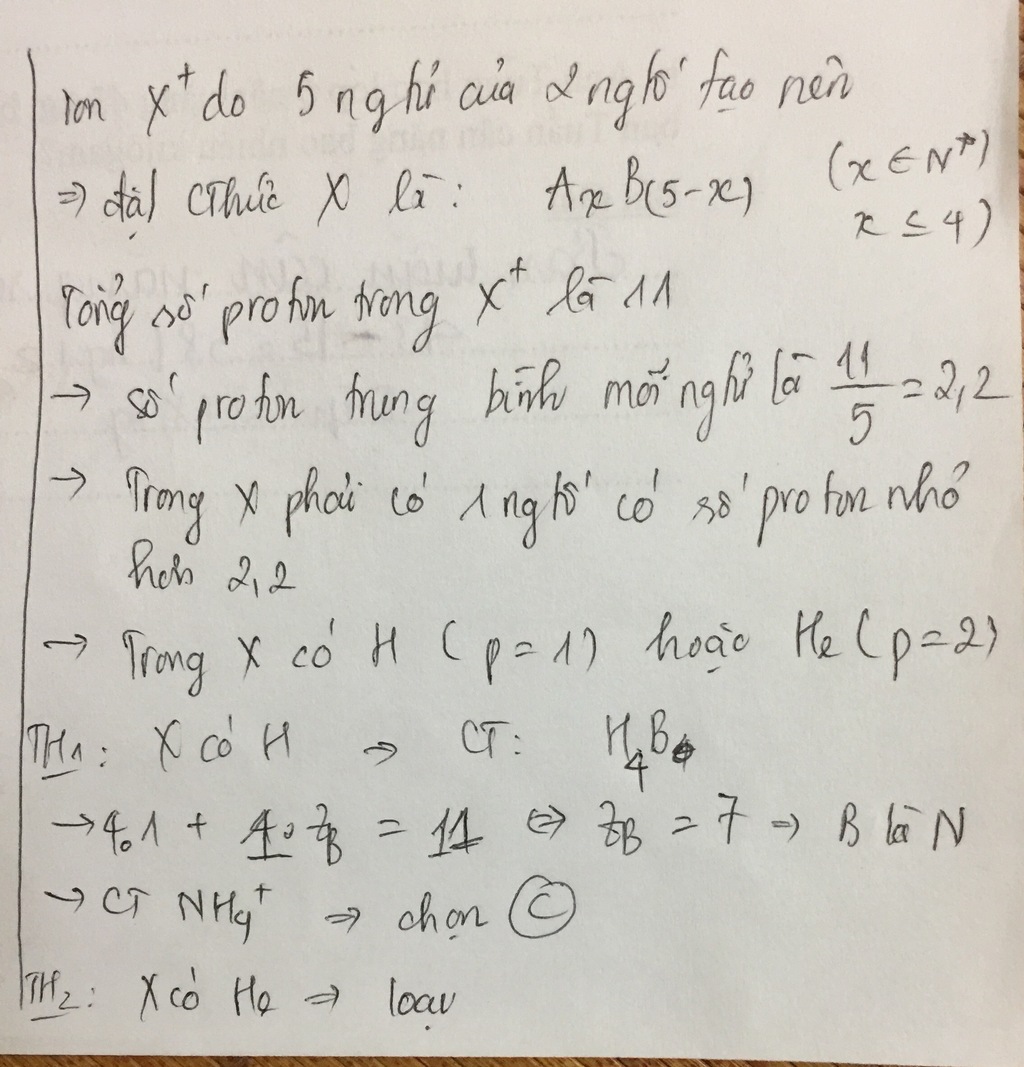 Ion X⁺ do 5 nghỉ của 2 nghtố tạo nên
⇒ đặt CThức X là: AxB(5-x) (x ∈ N*)
x ≤ 4)
Tổng số proton trong X⁺ là 11
→ số proton trung bình mỗi nghỉ là 11/5 = 2,2
→ Trong X phải có 1 nghtố có số proton nhỏ
hơn 2,2
→ Trong X có H (p=1) hoặc He (p=2)
TH1: X có H ⇒ CT: H₄B
→ 4.1 + 1.ZB = 11 ⇔ ZB = 7 ⇒ B là N
→ CT NH₄⁺ ⇒ chọn C
TH2: X có He ⇒ loại